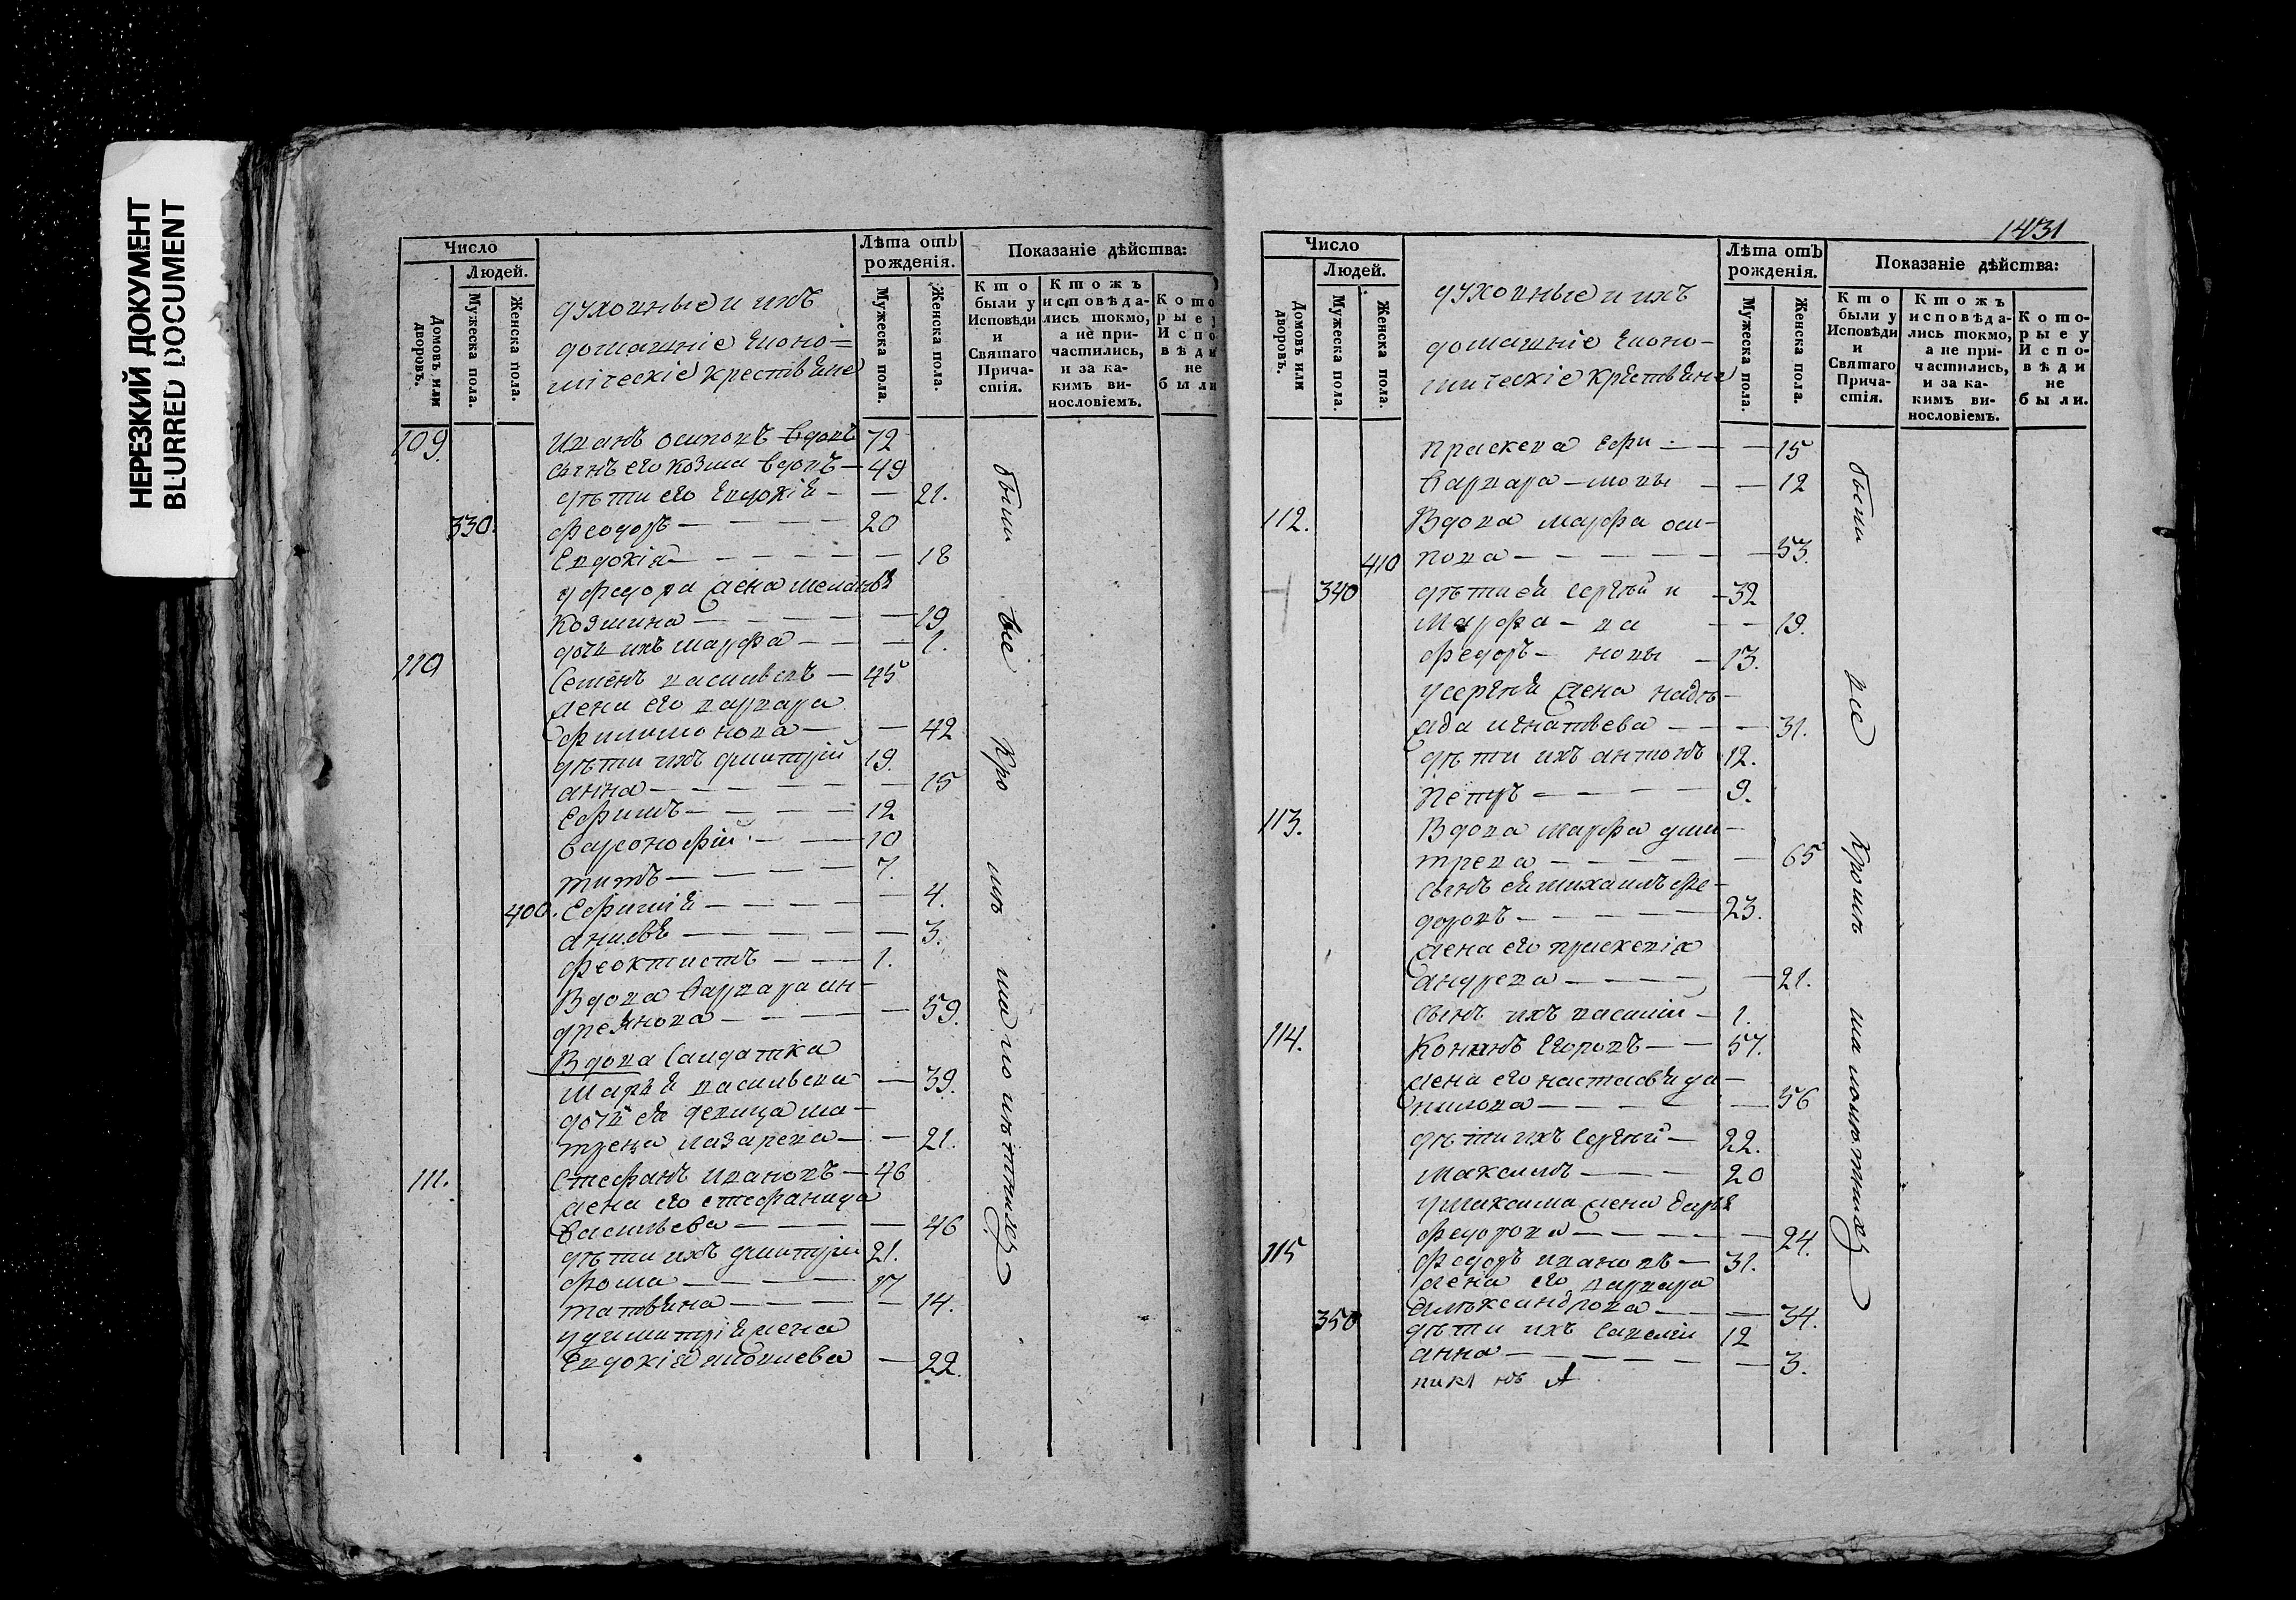 НЕРЕЗКИЙ ДОКУМЕНТ
BLURRED DOCUMENT
Число
Людей.
Домовъ или дворовъ.
Мужеска пола.
Женска пола.
духовные и ихъ
домашніе Еконо=
мическіе крестьяне
Лѣта отъ рожденія.
Мужеска пола.
Женска пола.
Показаніе дѣйства:
Кто были у Исповѣди и Святаго Причастія.
Ктожъ исповѣдались токмо, а не причастились, и за какимъ винословіемъ.
Которые у Исповѣди не были
109 Иванъ осиповъ вдовъ 72
сынъ его козма вдовъ — 49
дѣти его Евдокія — — 21.
330. Феодоръ — 20
Евдокія — 18
у федора жена меланья
козмина — 19
дочь ихъ марфа — 1.
110 Семенъ васильевъ — 45
жена его варвара
филимонова — 42
дѣти ихъ дмитрій 19.
анна — 15
Ефимъ — 12
варфоломей — 10
титъ — 7.
400. Ефимія — 4.
анисья — 3.
феоктистъ — 1.
Вдова варвара ан-
дреянова — 59.
Вдова Салдатка
марья васильева — 39.
дочь ея девица ма-
трена лазарева — 21.
111. Стефанъ ивановъ — 46
жена его стефанида
васильева — 46
дѣти ихъ дмитрій 21.
фома — 17
татьяна — 14.
у димитрія жена
Евдокія — 22.
были все кромѣ малолѣтныхъ
1431
Число
Людей.
Домовъ или дворовъ.
Мужеска пола.
Женска пола.
духовные и ихъ
домашніе Еконо-
мическіе крестьяне
Лѣта отъ рожденія.
Мужеска пола.
Женска пола.
Показаніе дѣйства:
Кто были у Исповѣди и Святаго Причастія.
Ктожъ исповѣдались токмо, а не причастились, и за какимъ винословіемъ.
Которые у Исповѣди не были.
праскева Ефи — 15
варвара — мовы — 12
112. Вдова марфа оси-
410 пова — 53.
340 дѣти ея Сергѣй и — 32
Марфа — ва — 19.
федоръ — новы — 13.
у сергѣя жена надѣ-
жда игнатьева — 31.
дѣти ихъ антонъ 12.
Петръ — 9.
113. Вдова марфа дми-
трева — 65
сынъ ея михаилъ фе-
доровъ — 23.
жена его праскевія
андрева — 21.
сынъ ихъ василій — 1.
114. Кононъ Егоровъ — 57.
жена его настасья да-
нилова — 56
дѣти ихъ Сергѣй — 22.
максимъ — 20
у максима жена дарья
федорова — 24.
115 Федоръ ивановъ — 31.
жена его варвара
александрова — 34.
350 дѣти ихъ савелій 12
анна — 3.
были все кромѣ малолѣтныхъ